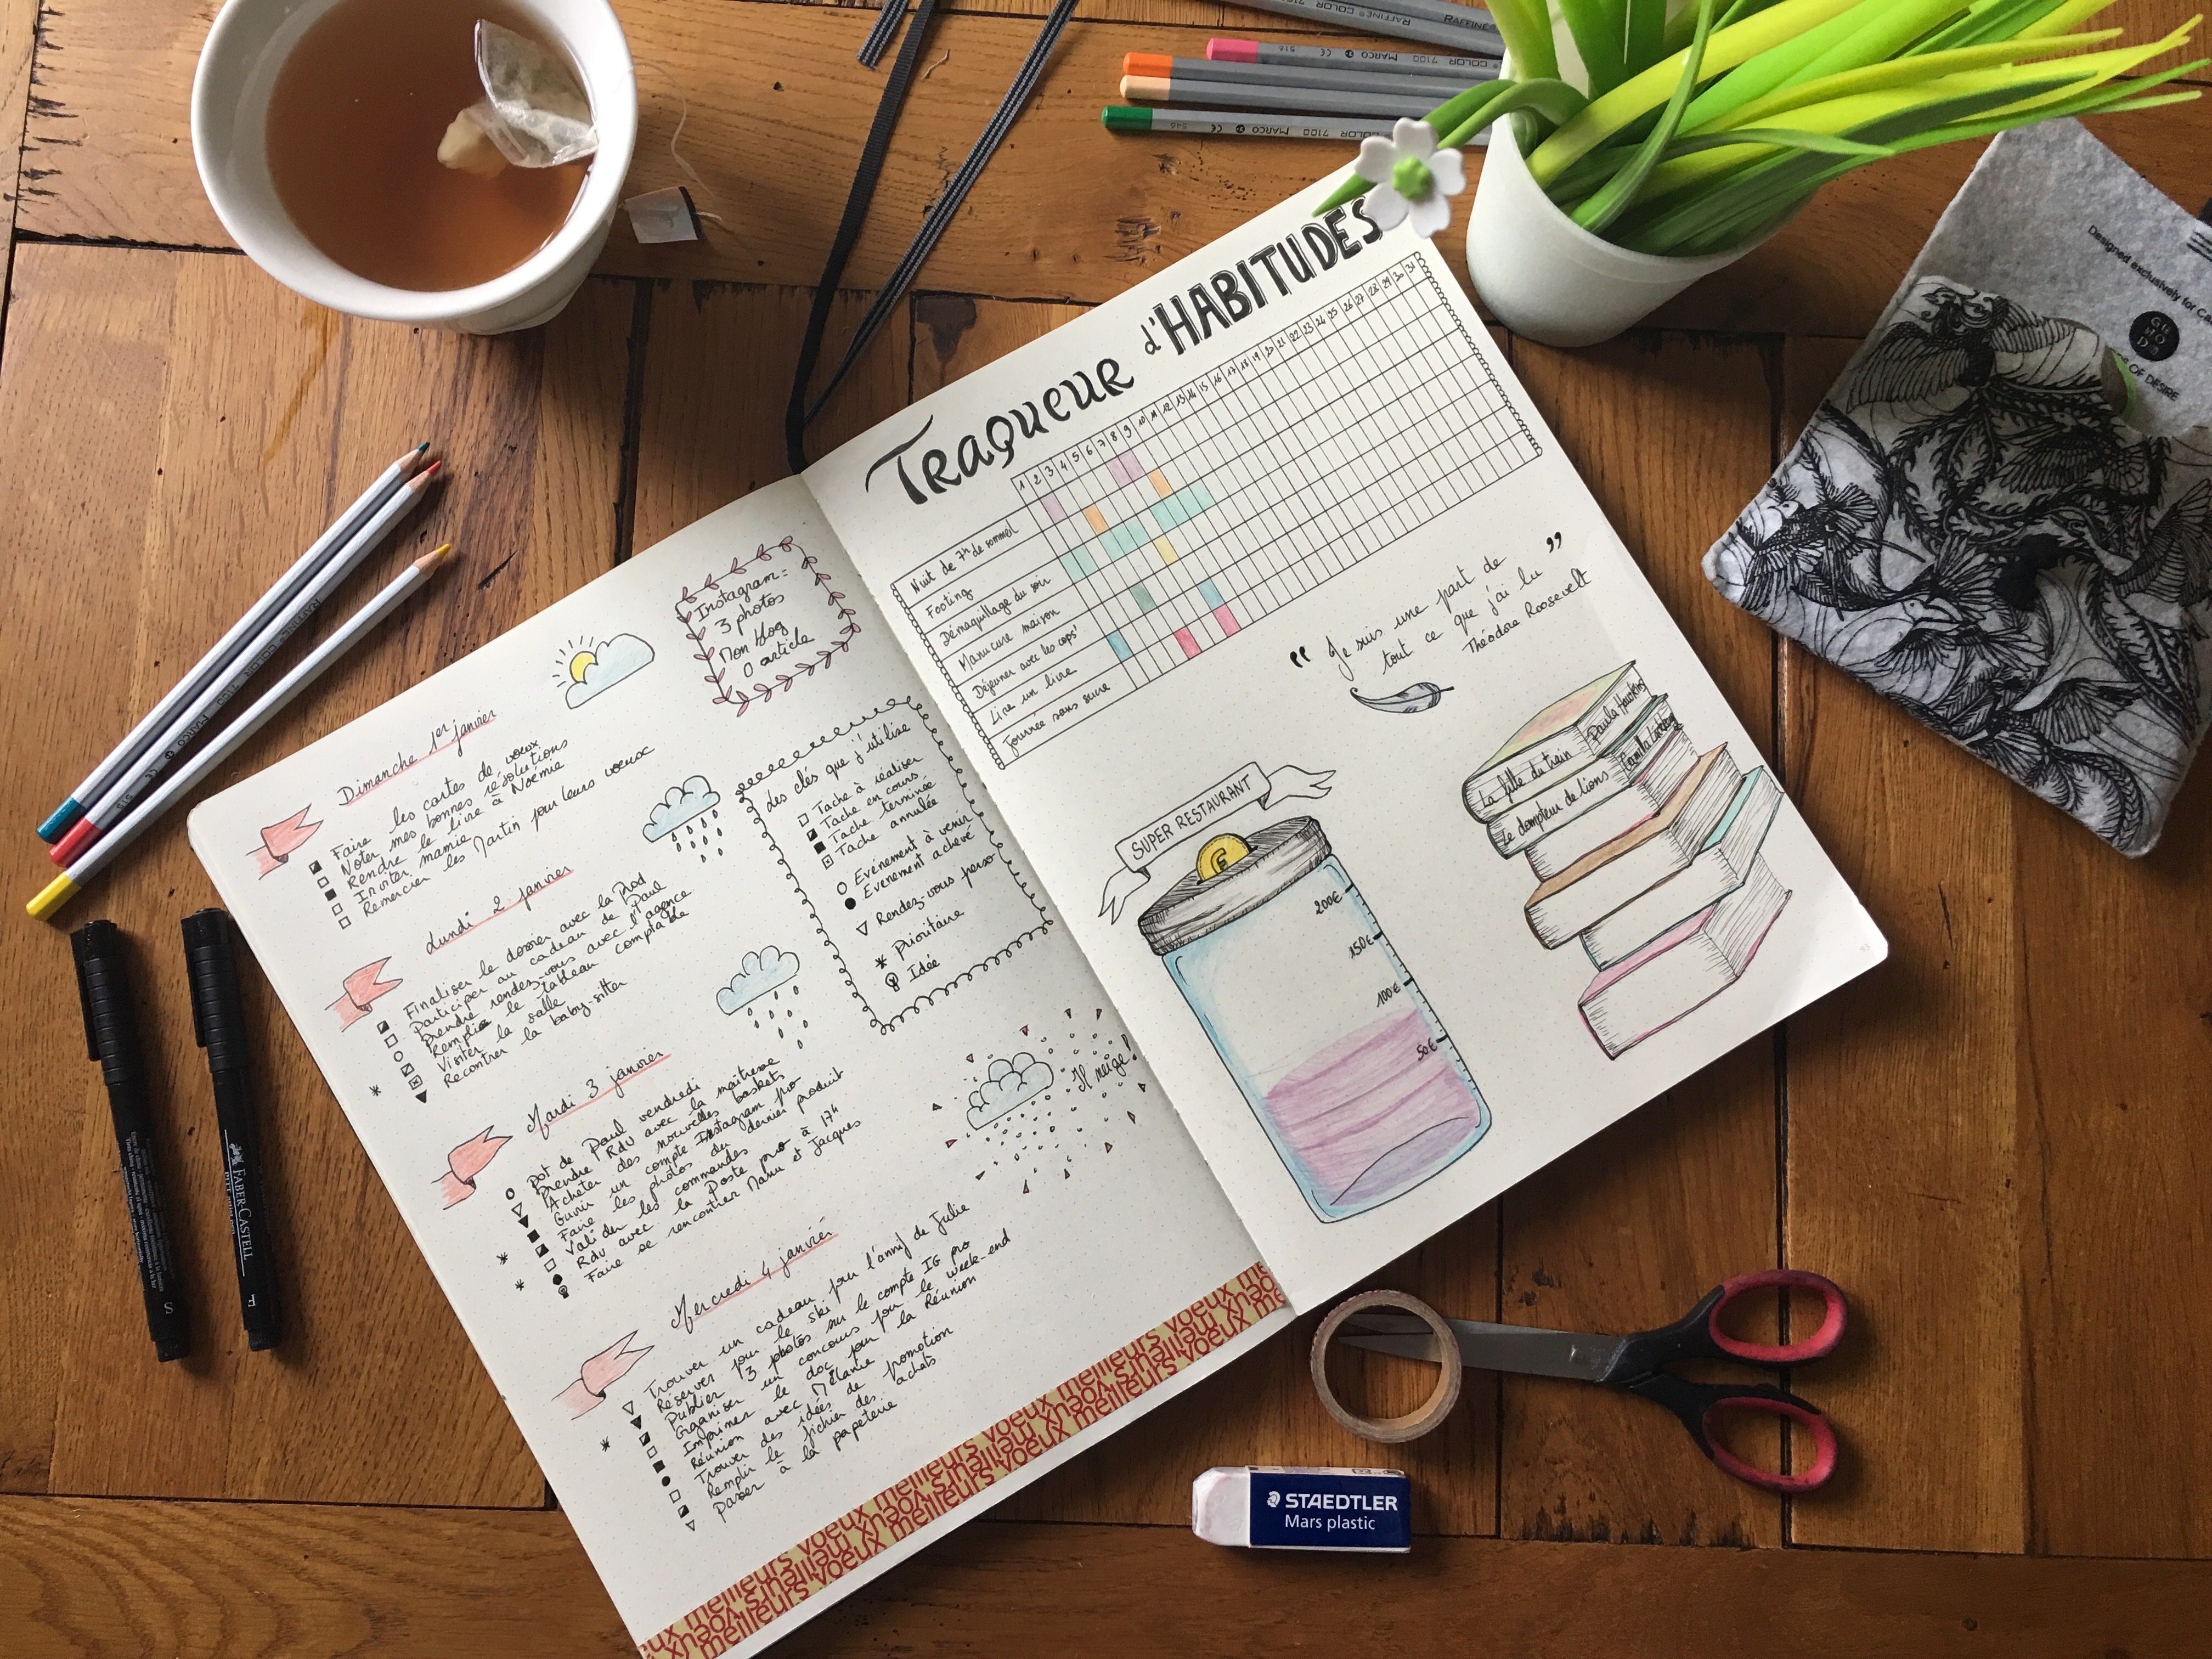 Dimanche 1er janvier
Faire les cartes de vœux
Noter mes bonnes résolutions
Rendre le livre à Noémie
Inviter mamie
Remercier les Martin pour leurs voeux
Lundi 2 janvier
Finaliser le dossier avec la Prod
Participer au cadeau de Paul
Prendre rendez-vous avec l'agence
Remplir le tableau comptable
Visiter la salle
Recontrer la baby-sitter
Mardi 3 janvier
pot de Paul vendredi
Prendre Rdv avec la maîtresse
Acheter des nouvelles baskets
Ouvrir un compte Instagram pro
Faire les photos du dernier produit
Valider les commandes
Rdv avec la Poste pro à 17h
Faire se rencontrer Manu et Jacques
Mercredi 4 janvier
Trouver un cadeau pour l'annif de Julie
Réserver pour le ski
Publier 3 photos sur le compte IG pro
Organiser un concours pour le week-end
Imprimer le doc pour la Réunion
Réunion avec Mélanie
Trouver des idées de promotion
Remplir le fichier des achats
passer à la papeterie
Instagram =
3 photos
Mon blog
0 article
des clés que j'utilise
Tache à réaliser
Tache en cours
Tache terminée
Tache annulée
Evènement à venir
Evenement achevé
Rendez-vous perso
* Prioritaire
Idée
Il neige!
meilleurs voeux meilleurs voeux meilleurs voeux
TRAQUEUR d'HABITUDES
1 2 3 4 5 6 7 8 9 10 11 12 13 14 15 16 17 18 19 20 21 22 23 24 25 26 27 28 29 30 31
Nuit de 7h de sommeil
Footing
Démaquillage du soir
Manucure maison
Déjeuner avec les cops'
Lire un livre
Journée sans sucre
" Je suis une part de
tout ce que j'ai lu "
Théodore Roosevelt
SUPER RESTAURANT
200€
150€
100€
50€
La fille du train
Paula Hawkins
Le dompteur de lions
Camilla Läckberg
RAFFINÉ
COLOR 7100 MARCO CE 516
COLOR 7100 MARCO CE 546
FABER-CASTELL
S
F
STAEDTLER
Mars plastic
Designed exclusively for
OF DESIRE